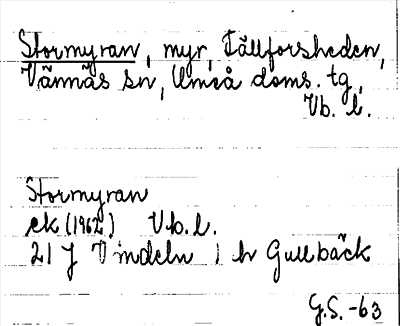 Stormyran, myr, Tällforsheden,
Vännäs sn, Umeå doms. tg,
Vb. l.
Stormyran
ek (1962) Vb. l.
21 J Vindeln h Gullbäck
G.S. -63